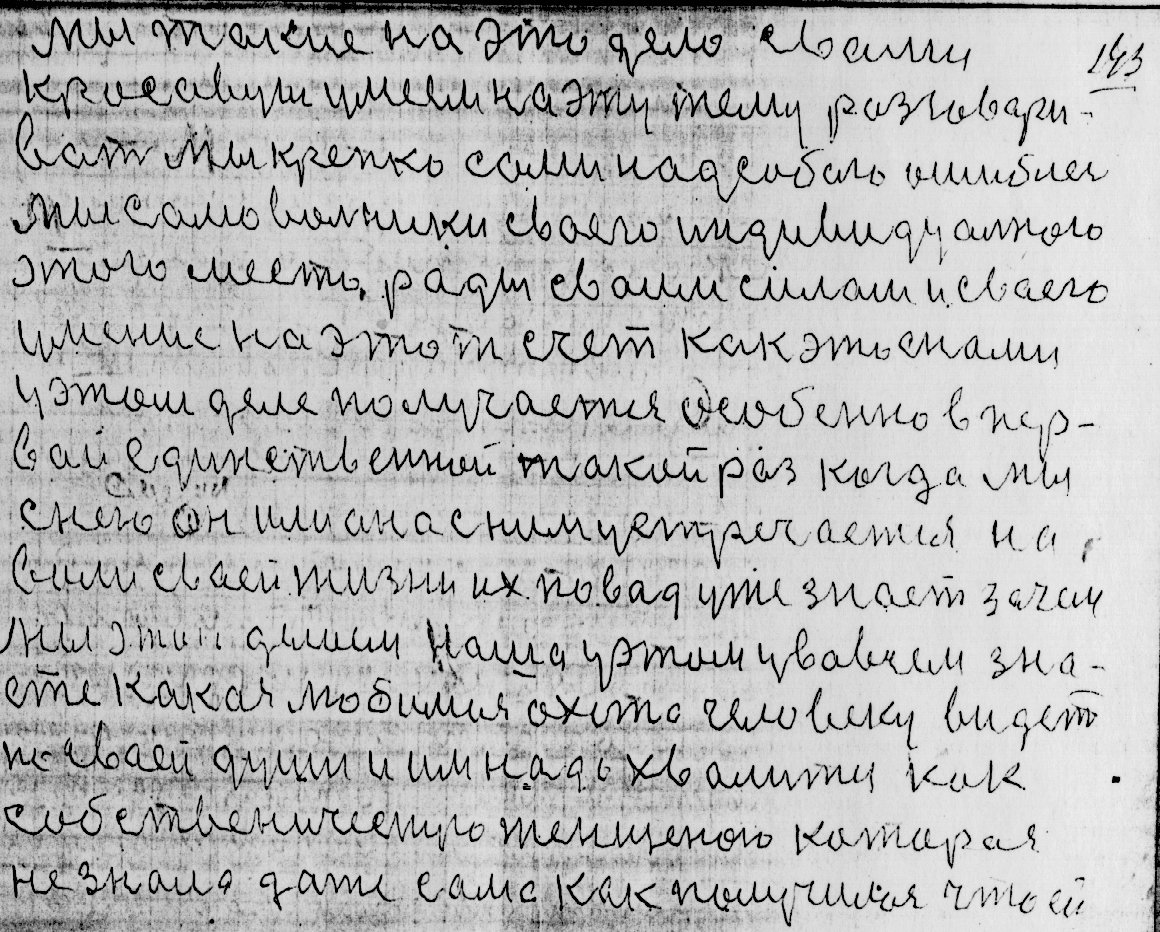 мы такие на это дело сваими 143
кросавцы умеем на эту тему разговари-
ват Мы крепко сами над собою ошиблис
Мы самоволники своего индивидуалного
этого место, ради сваим силам и сваего
умение на этот счет как это снами
у этом деле получается Особенно в пер-
вай единственной такой раз когда мы
снею он или ана с ним устречается на
воли сваей жизни их повад уже знает зачем
мы этой делаем наша у этом у вовсем зна-
ете какая любимая охота человеку видет
по сваей души и им надо хвалитц как
собственическую женщеною катарая
не знала даже сама как получился что ей